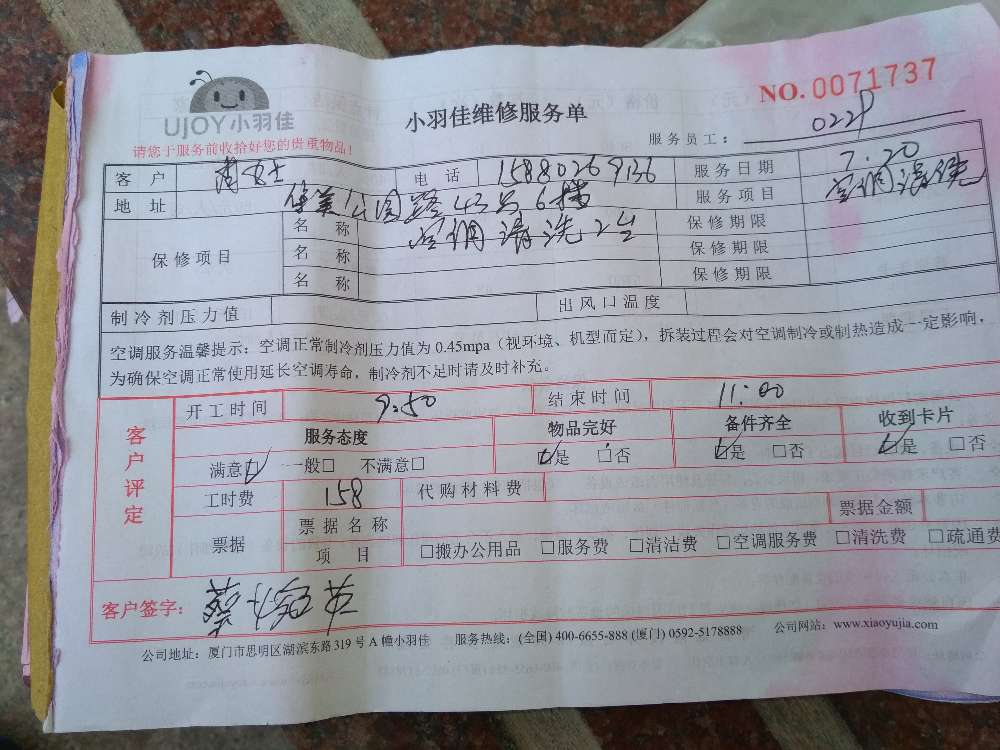 UJOY小羽佳
小羽佳维修服务单
NO. 0071737
请您于服务前收拾好您的贵重物品!
服务员工: 022P
客户 女士 电话 15880269136 服务日期 7.20
地址 公园路43号6楼 服务项目 空调清洗
保修项目 名称 空调清洗2台 保修期限
名称 保修期限
名称 保修期限
制冷剂压力值 出风口温度
空调服务温馨提示: 空调正常制冷剂压力值为 0.45mpa (视环境、机型而定), 拆装过程会对空调制冷或制热造成一定影响,
为确保空调正常使用延长空调寿命, 制冷剂不足时请及时补充。
客户评定
开工时间 9:50 结束时间 11:00
服务态度 物品完好 备件齐全 收到卡片
满意□ 一般□ 不满意□ □是 □否 □是 □否 □是 □否
工时费 158 代购材料费
票据 票据名称 票据金额
项目 □搬办公用品 □服务费 □清洁费 □空调服务费 □清洗费 □疏通费
客户签字: 蔡 英
公司地址: 厦门市思明区湖滨东路319号A幢小羽佳 服务热线: (全国) 400-6655-888 (厦门) 0592-5178888 公司网站: www.xiaoyujia.com